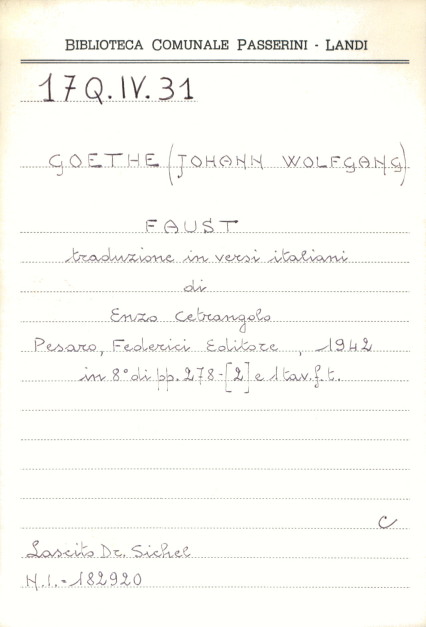 BIBLIOTECA COMUNALE PASSERINI - LANDI
17Q.IV.31
GOETHE (JOHANN WOLFGANG)
FAUST
traduzione in versi italiani
di
Enzo Cetrangolo
Pesaro, Federici Editore, 1942
in 8° di pp. 278-[2] e 1 tav. f. t.
C
Lascito Dr. Sichel
N.I.- 182920